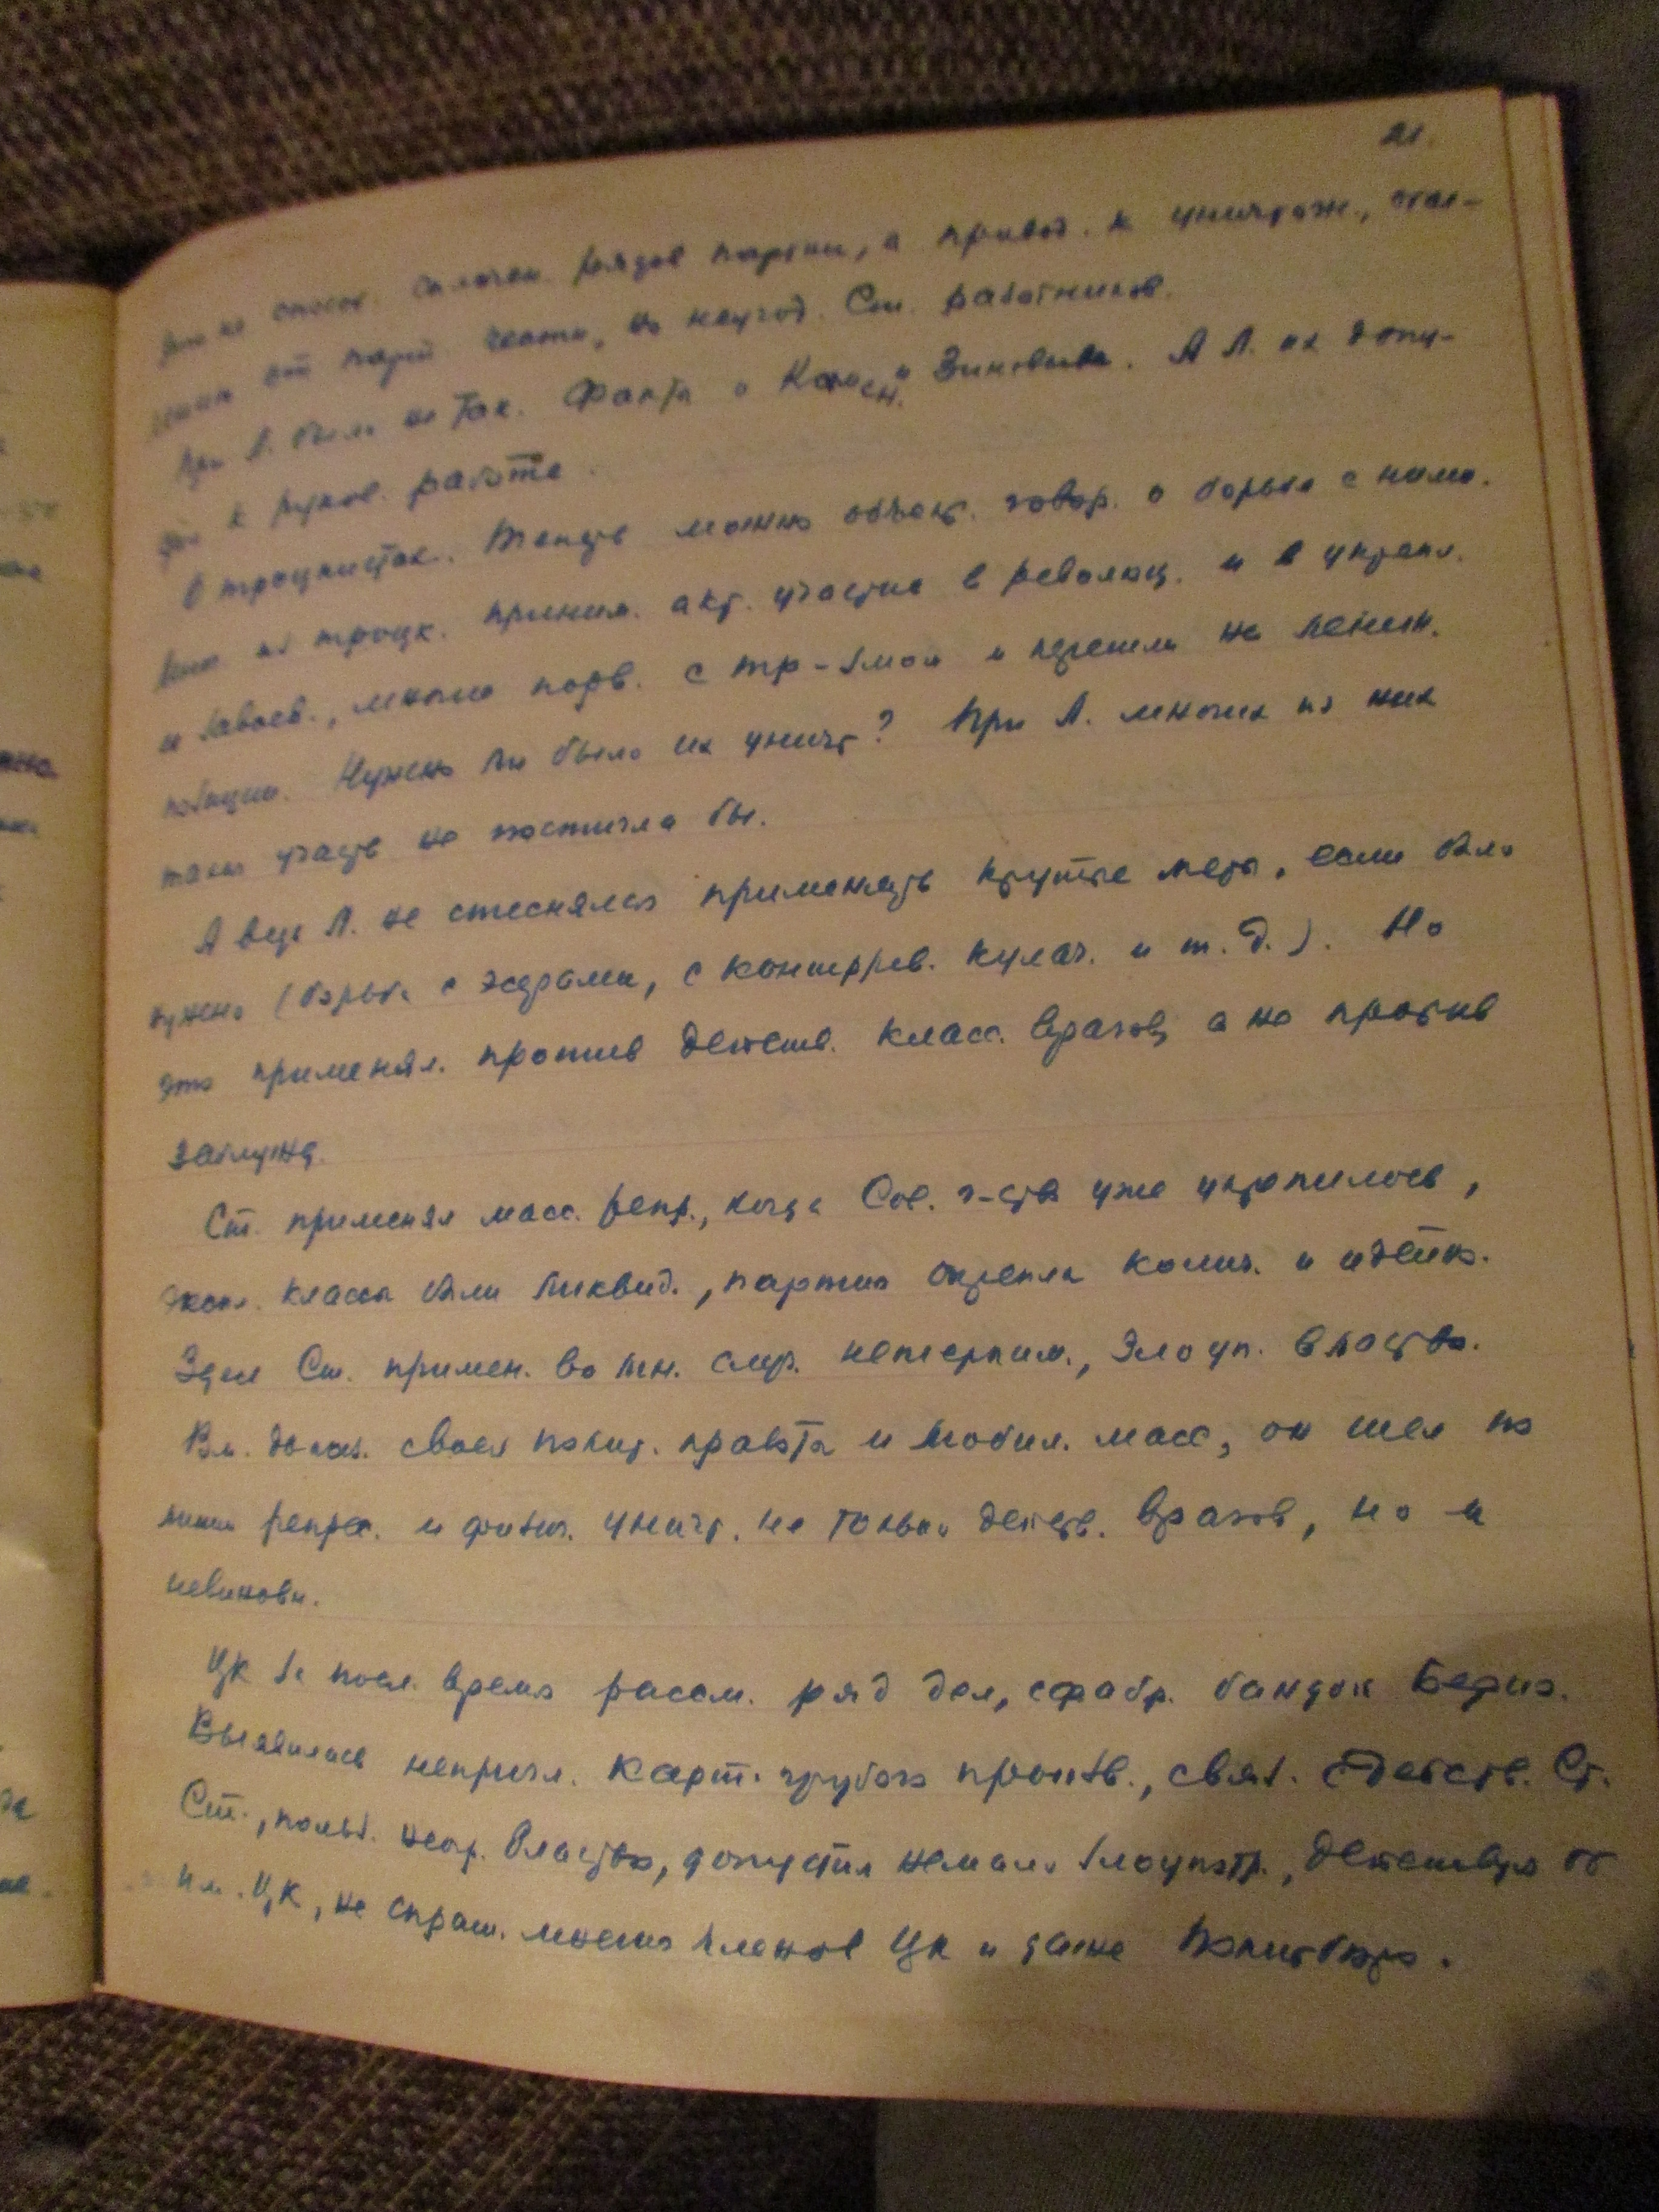 21.
это не способ. сплочен. рядов партии, а привод. к уничтож., отсе-
чению от парт. честн., но неугод. Ст. работников.
При Л. было не так. Факты о Камен. и Зиновьева. А Л. их допу-
к руков. работе.
О троцкистах. Теперь можно объект. говор. о борьбе с ними.
из троцк. приним. акт. участие в револющ. и в укрепл.
и завоев., многие порв. с тр-змом и перешли на ленин.
позиции. Нужно ли было их уничт? При Л. многих из них
такая участь не постигла бы.
А ведь Л. не стеснялся применять крутые меры, если было
нужно (борьба с эсерами, с контррев. кулач. и т. д.). Но
это применял. против действ. класс. врагов, а не против
заблужд.
Ст. применял масс. репр., когда Сов. г-ств уже укрепилось,
экспл. классы были ликвид., партия окрепла колич. и идейно.
Здесь Ст. примен. во мн. случ. нетерпим., злоуп. властью.
Вм. доказ. своей полит. правоты и мобил. масс, он шел по
линии репрес. и физич. уничт. не только действ. врагов, но и
невиновн.
ЦК за посл. время рассм. ряд дел, сфабр. бандой Берия.
Выявилась непригл. карт. грубого произв., связ. с действ. Ст.
Ст., польз. неогр. властью, допустил немало злоупотр., действуя от
им. ЦК, не спраш. мнения членов ЦК и даже Политбюро.